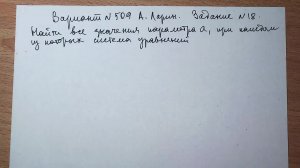 Вариант N 509 А. Ларин. Задание N 18.
Найти все значения параметра а, при каждом
из которых система уравнений